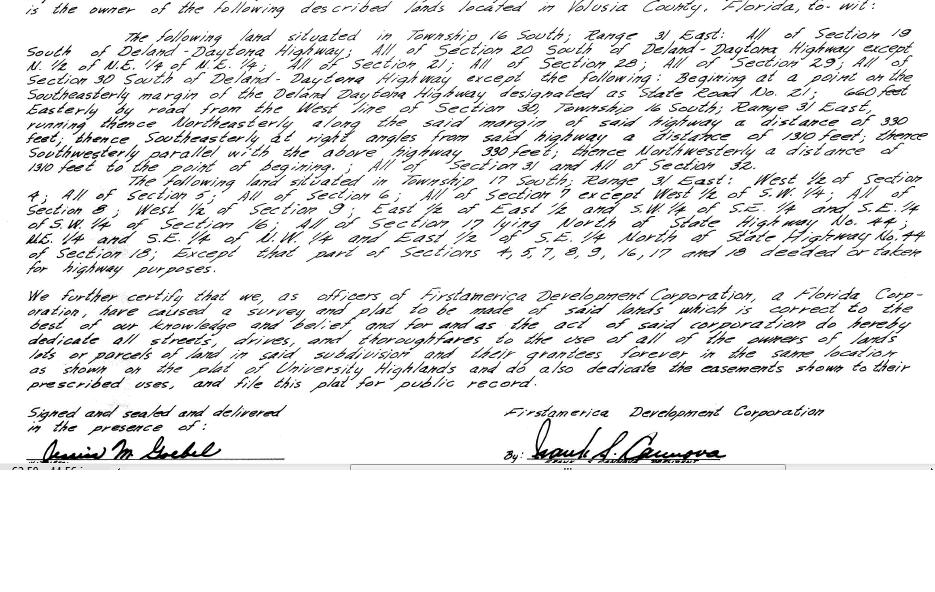 is the owner of the following described lands located in Volusia County, Florida, to-wit:
The following land situated in Township 16 South; Range 31 East: All of Section 19
South of Deland-Daytona Highway; All of Section 20 South of Deland-Daytona Highway except
N. 1/2 of N.E. 1/4 of N.E. 1/4; All of Section 21; All of Section 28; All of Section 29; All of
Section 30 South of Deland-Daytona Highway except the following: Begining at a point on the
Southeasterly margin of the Deland Daytona Highway designated as State Road No. 21; 660 feet
Easterly by road from the West line of Section 30, Township 16 South; Range 31 East,
running thence Northeasterly along the said margin of said highway a distance of 330
feet, thence Southeasterly at right angles from said highway a distance of 1310 feet; thence
Southwesterly parallel with the above highway 330 feet; thence Northwesterly a distance of
1310 feet to the point of begining.; All of Section 31, and All of Section 32.
The following land situated in Township 17 South; Range 31 East: West 1/2 of Section
4; All of Section 5; All of Section 6; All of Section 7 except West 1/2 of S.W. 1/4; All of
Section 8; West 1/2 of Section 9; East 1/2 of East 1/2 and S.W. 1/4 of S.E. 1/4 and S.E. 1/4
of S.W. 1/4 of Section 16; All of Section 17 lying North of State Highway No. 44;
N.E. 1/4 and S.E. 1/4 of N.W. 1/4 and East 1/2 of S.E. 1/4 North of State Highway No. 44
of Section 18; Except that part of Sections 4, 5, 7, 8, 9, 16, 17 and 18 deeded or taken
for highway purposes.
We further certify that we, as officers of Firstamerica Development Corporation, a Florida Corp-
oration, have caused a survey and plat to be made of said lands which is correct to the
best of our knowledge and belief and for and as the act of said corporation do hereby
dedicate all streets, drives, and thoroughfares to the use of all of the owners of lands
lots or parcels of land in said subdivision and their grantees forever in the same location
as shown on the plat of University Highlands and do also dedicate the easements shown to their
prescribed uses, and file this plat for public record.
Signed and sealed and delivered
in the presence of:
Firstamerica Development Corporation
Jessie M Goebel
By: Frank S. Cannova